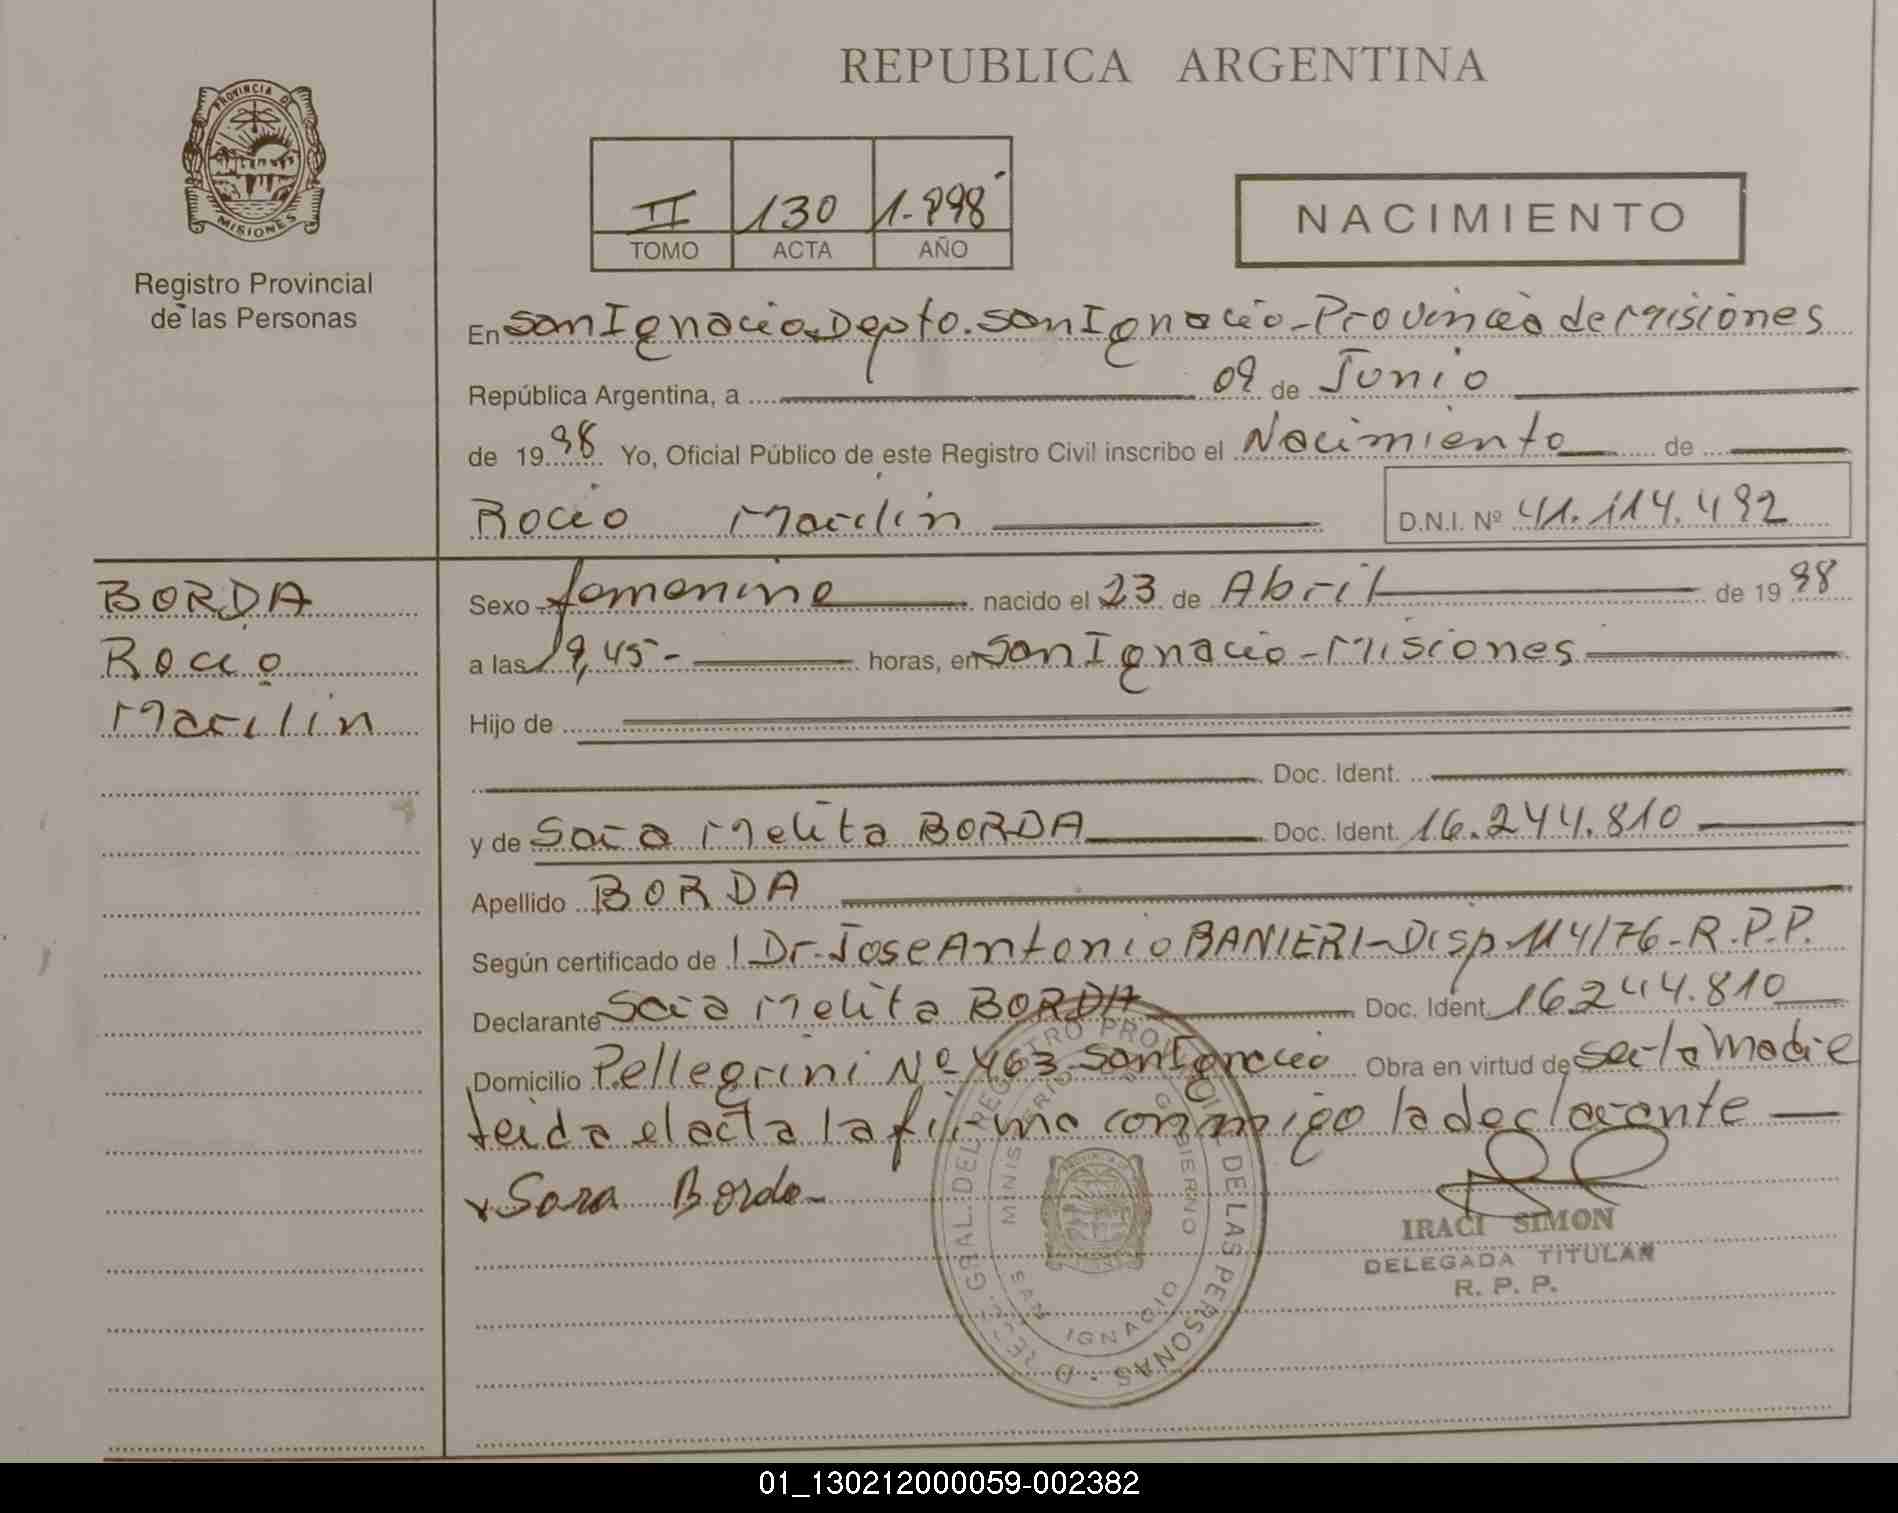 REPUBLICA ARGENTINA
PROVINCIA DE MISIONES
Registro Provincial
de las Personas
II 130 1.998
TOMO ACTA AÑO
NACIMIENTO
En San Ignacio, Depto. San Ignacio - Provincia de Misiones
República Argentina, a 09 de Junio
de 1998 Yo, Oficial Público de este Registro Civil inscribo el Nacimiento de
Rocio Marilin D.N.I. Nº 41.114.492
BORDA
Rocio
Marilin
Sexo femenino nacido el 23 de Abril de 1998
a las 19,45 - horas, en San Ignacio - Misiones
Hijo de
Doc. Ident.
y de Sara Melita BORDA Doc. Ident. 16.244.810
Apellido BORDA
Según certificado del Dr. Jose Antonio RANIERI - Disp. 114/76 - R.P.P.
Declarante Sara Melita BORDA Doc. Ident. 16.244.810
Domicilio Pellegrini Nº 463 San Ignacio Obra en virtud de ser la Madre
leida el acta la firma conmigo la declarante
x Sara Borda
IRACI SIMON
DELEGADA TITULAR
R. P. P.
GRAL. DEL REGISTRO PROV. DE LAS PERSONAS
MINISTERIO GOBIERNO
SAN IGNACIO
01_130212000059-002382